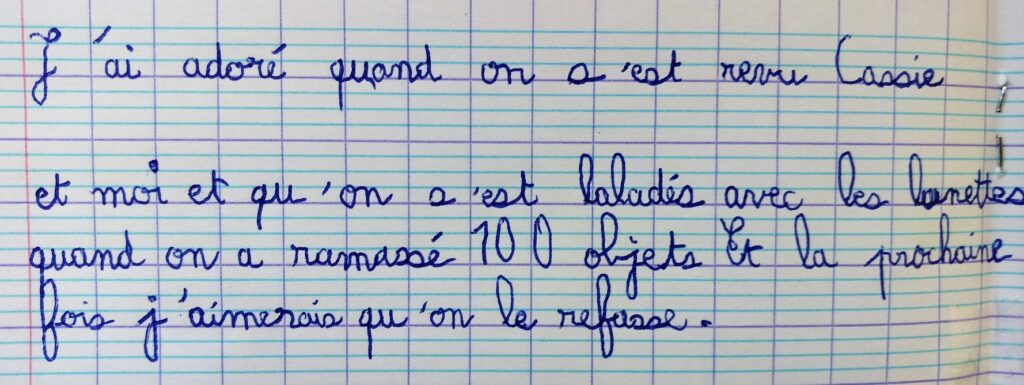 J'ai adoré quand on s'est revu Cassie
et moi et qu'on s'est baladés avec les banettes
quand on a ramassé 100 objets Et la prochaine
fois j'aimerais qu'on le refasse.